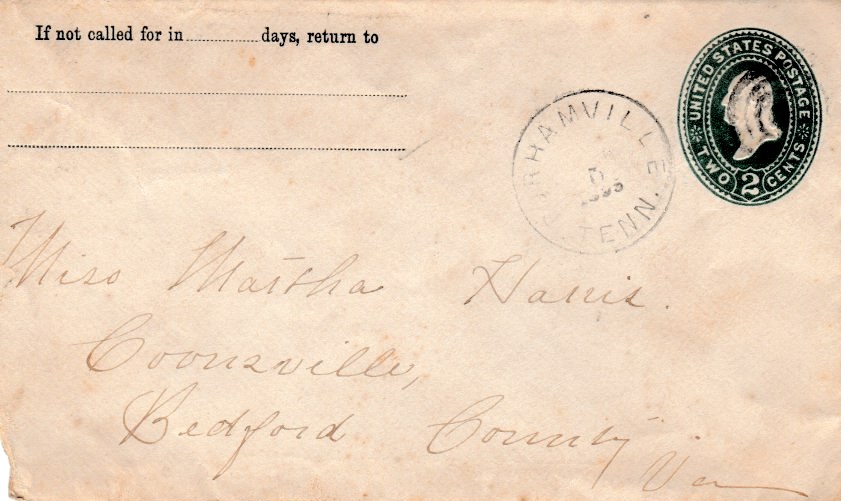 If not called for in............days, return to
UNITED STATES POSTAGE
TWO 2 CENTS
TENN.
Miss Martha Harris.
Coonsville,
Bedford County
Va